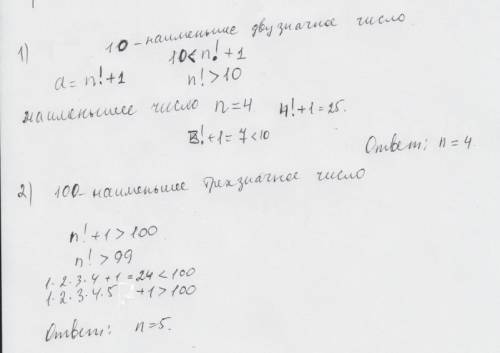 1) 10-наименьшее двузначное число
10 < n! + 1
a = n! + 1 n! > 10
наименьшее число n = 4 4! + 1 = 25.
3! + 1 = 7 < 10
Ответ: n = 4
2) 100-наименьшее трехзначное число
n! + 1 > 100
n! > 99
1·2·3·4 + 1 = 24 < 100
1·2·3·4·5 + 1 > 100
Ответ: n = 5.